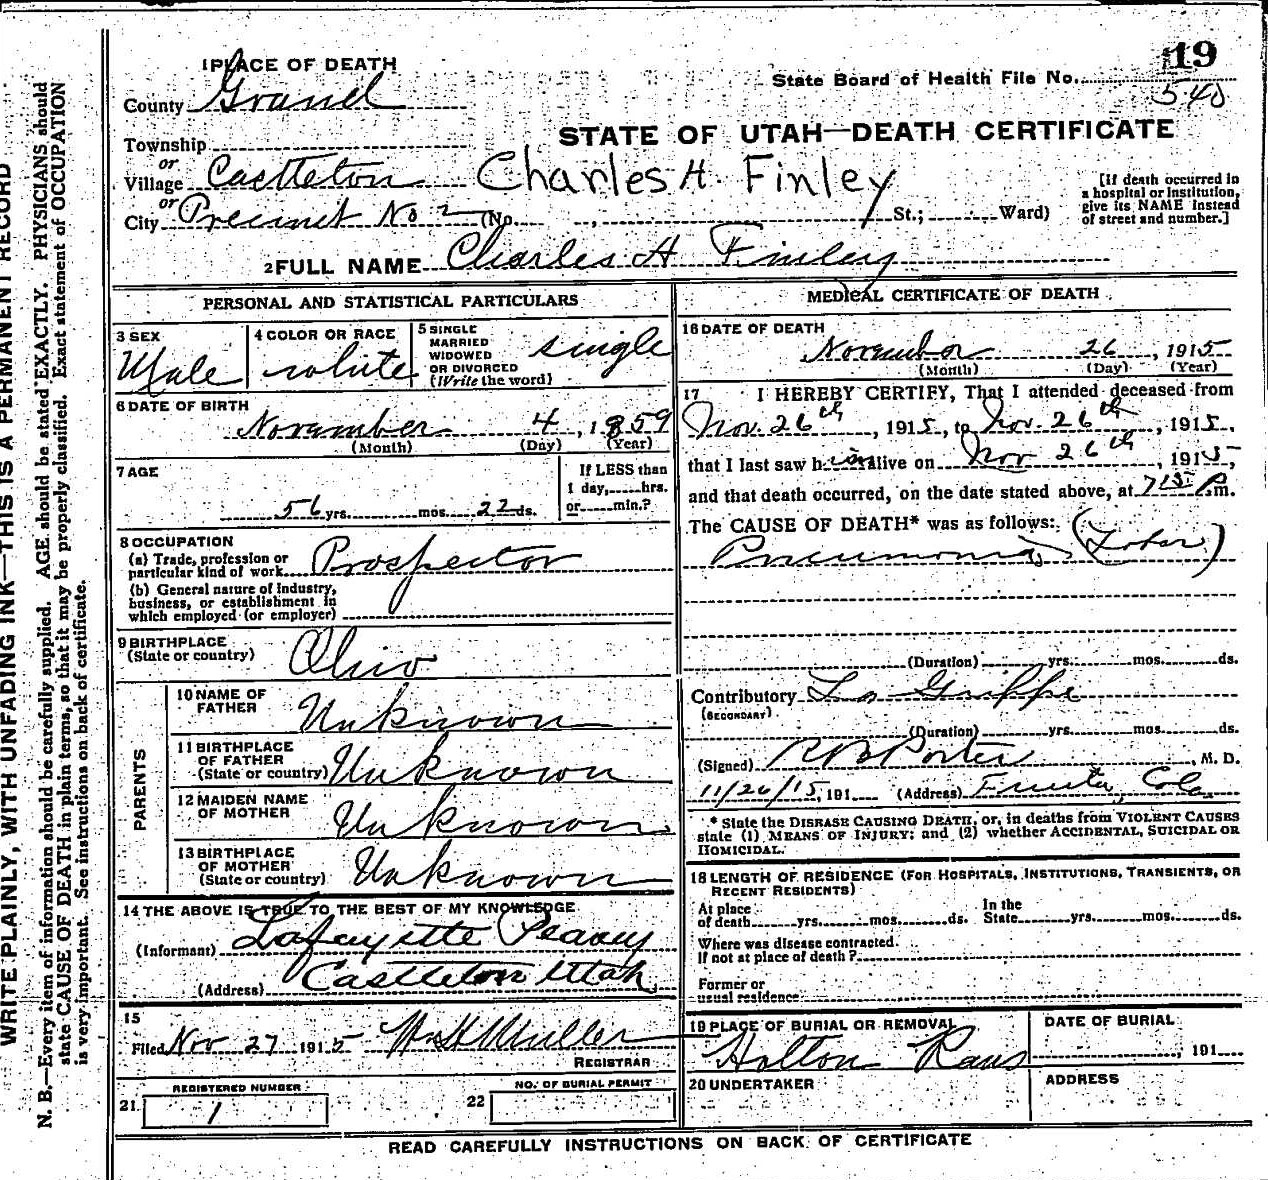 19
1 PLACE OF DEATH
State Board of Health File No. 540
County Grand
STATE OF UTAH—DEATH CERTIFICATE
Township
or
Village Castleton Charles H. Finley
or
City Precinct No 2 (No. , St.; Ward)
[If death occurred in
a hospital or institution,
give its NAME instead
of street and number.]
2 FULL NAME Charles H Finley
PERSONAL AND STATISTICAL PARTICULARS
3 SEX
Male
4 COLOR OR RACE
white
5 SINGLE
MARRIED
WIDOWED
OR DIVORCED
(Write the word)
single
6 DATE OF BIRTH
November 4, 1859
(Month) (Day) (Year)
7 AGE
56 yrs. mos. 22 ds.
If LESS than
1 day, hrs.
or min.?
8 OCCUPATION
(a) Trade, profession or
particular kind of work Prospector
(b) General nature of industry,
business, or establishment in
which employed (or employer)
9 BIRTHPLACE
(State or country) Ohio
PARENTS
10 NAME OF
FATHER Unknown
11 BIRTHPLACE
OF FATHER
(State or country) Unknown
12 MAIDEN NAME
OF MOTHER Unknown
13 BIRTHPLACE
OF MOTHER
(State or country) Unknown
14 THE ABOVE IS TRUE TO THE BEST OF MY KNOWLEDGE
(Informant) Lafayette Peavey
(Address) Castleton Utah
15
Filed Nov 27 1915 Muller
REGISTRAR
REGISTERED NUMBER
21. 1
NO. OF BURIAL PERMIT
22
MEDICAL CERTIFICATE OF DEATH
16 DATE OF DEATH
November 26, 1915
(Month) (Day) (Year)
17 I HEREBY CERTIFY, That I attended deceased from
Nov. 26th, 1915, to Nov. 26th, 1915,
that I last saw him alive on Nov 26th, 1915,
and that death occurred, on the date stated above, at 715 P.m.
The CAUSE OF DEATH* was as follows:
Pneumonia (Lobar)
(Duration) yrs. mos. ds.
Contributory La Grippe
(SECONDARY)
(Duration) yrs. mos. ds.
(Signed) R B Porter, M. D.
11/26/15, 191 (Address) Fruita, Colo
* State the DISEASE CAUSING DEATH, or, in deaths from VIOLENT CAUSES
state (1) MEANS OF INJURY; and (2) whether ACCIDENTAL, SUICIDAL OR
HOMICIDAL.
18 LENGTH OF RESIDENCE (FOR HOSPITALS, INSTITUTIONS, TRANSIENTS, OR
RECENT RESIDENTS)
At place
of death yrs. mos. ds.
In the
State yrs. mos. ds.
Where was disease contracted.
If not at place of death?
Former or
usual residence
19 PLACE OF BURIAL OR REMOVAL
DATE OF BURIAL
, 191
20 UNDERTAKER
ADDRESS
READ CAREFULLY INSTRUCTIONS ON BACK OF CERTIFICATE
WRITE PLAINLY, WITH UNFADING INK—THIS IS A PERMANENT RECORD
N. B.—Every item of information should be carefully supplied. AGE should be stated EXACTLY. PHYSICIANS should
state CAUSE OF DEATH in plain terms, so that it may be properly classified. Exact statement of OCCUPATION
is very important. See instructions on back of certificate.